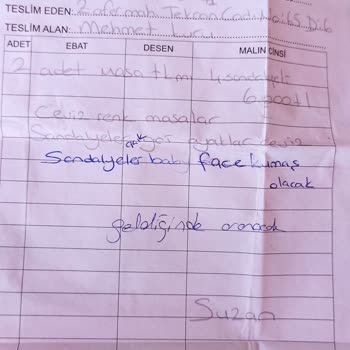 TESLİM EDEN: Zafer mah Tekcan Cad No: 65 D:6
TESLİM ALAN: Mehmet
ADET EBAT DESEN MALIN CİNSİ
2 adet masa tkmı 4 sandalyeli
6.900 tl
Ceviz renk masalar
Sandalyeler ayaklar ceviz
Sandalyeler baby face kumaş
olacak
geldiğinde aranacak
Suzan